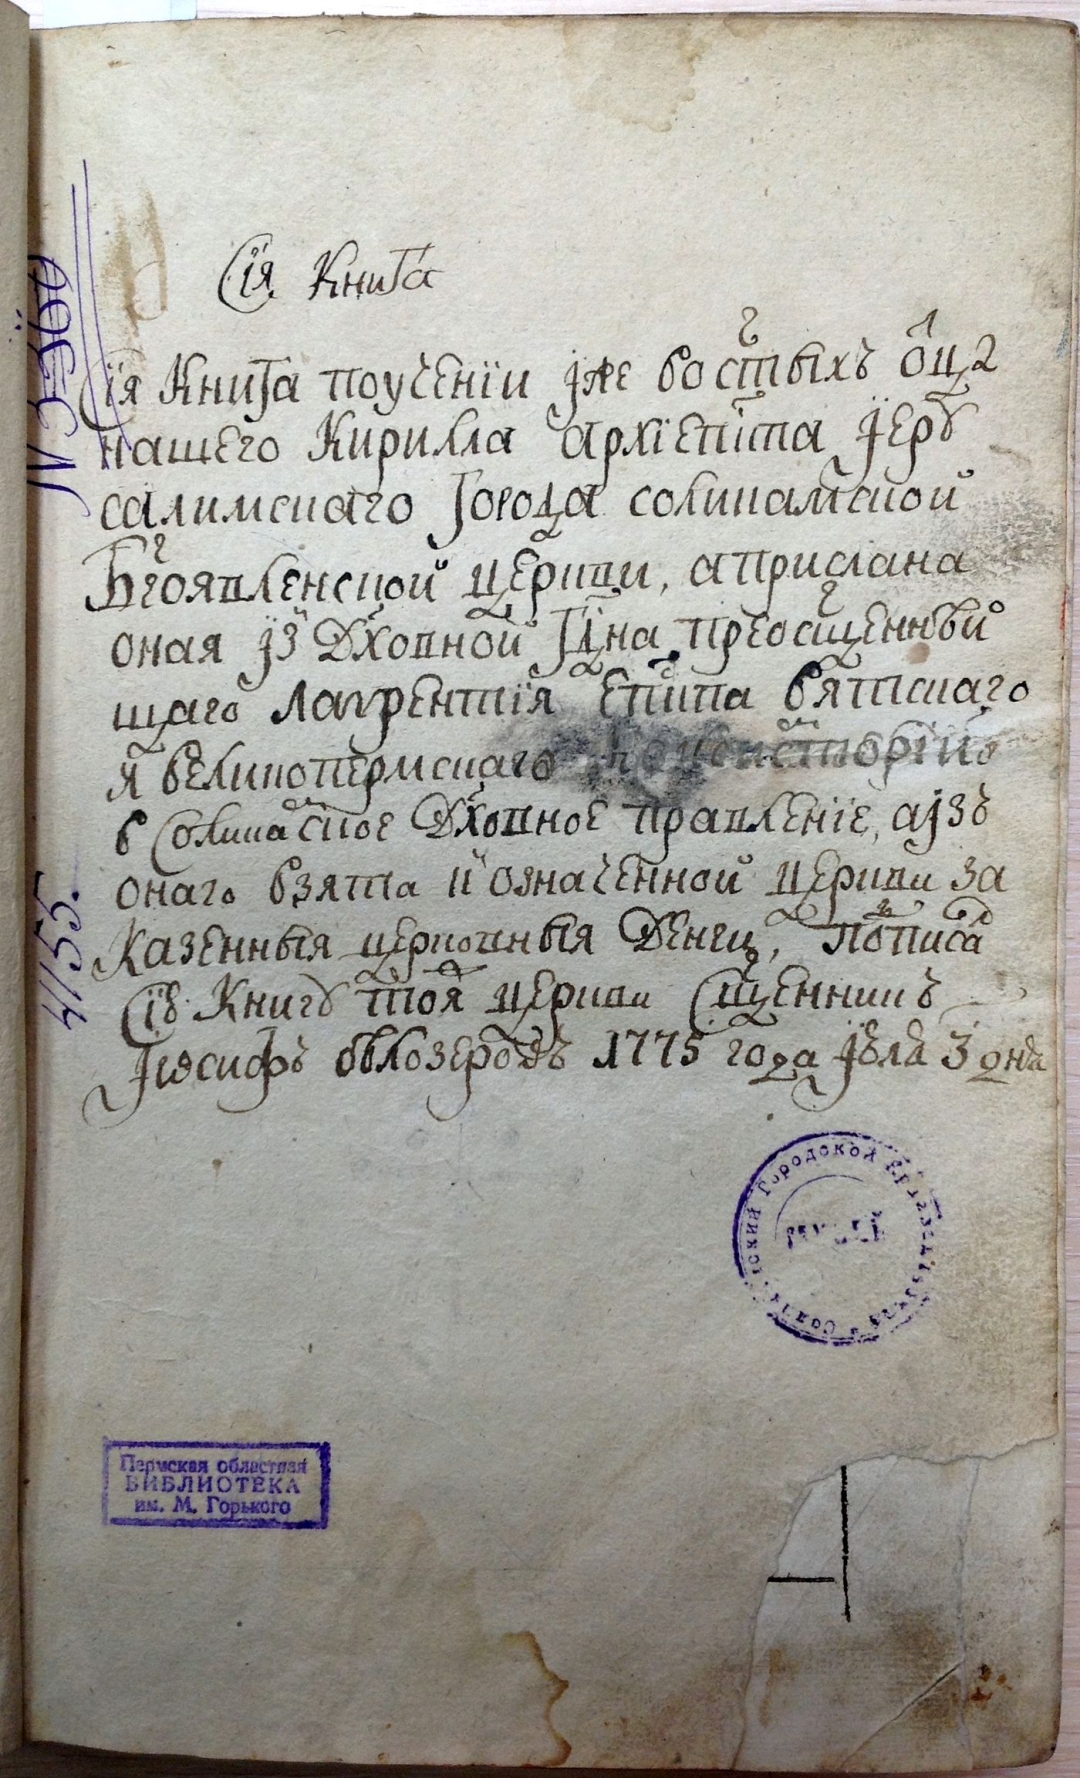 Сїя Книга
Сїя Книга поученїи јже во с҃тыхъ оц҃а
нашего Кирилла архїеп҃їпа їеру
салимскаго города соликамской
Бг҃оявленской церкви, а прислана
оная јзъ Дх҃овной Гд҃на преосщ҃еннѣй
щаго Лаѵрентїя еп҃їпа вятскаго
й великопермскаго консторїи
в Соликамское Дх҃овное правленїе, а јзъ
онаго взята къ означенной церкви за
казенныя церковныя Денги, Пописа
Сїю Книгу тоя церкви Сщ҃енникъ
Јѡсифъ бѣлозеровъ 1775 года јюля 3 дня
N 3360
4155.
Городской
МУЗЕЙ
Пермская областная
БИБЛИОТЕКА
им. М. Горького